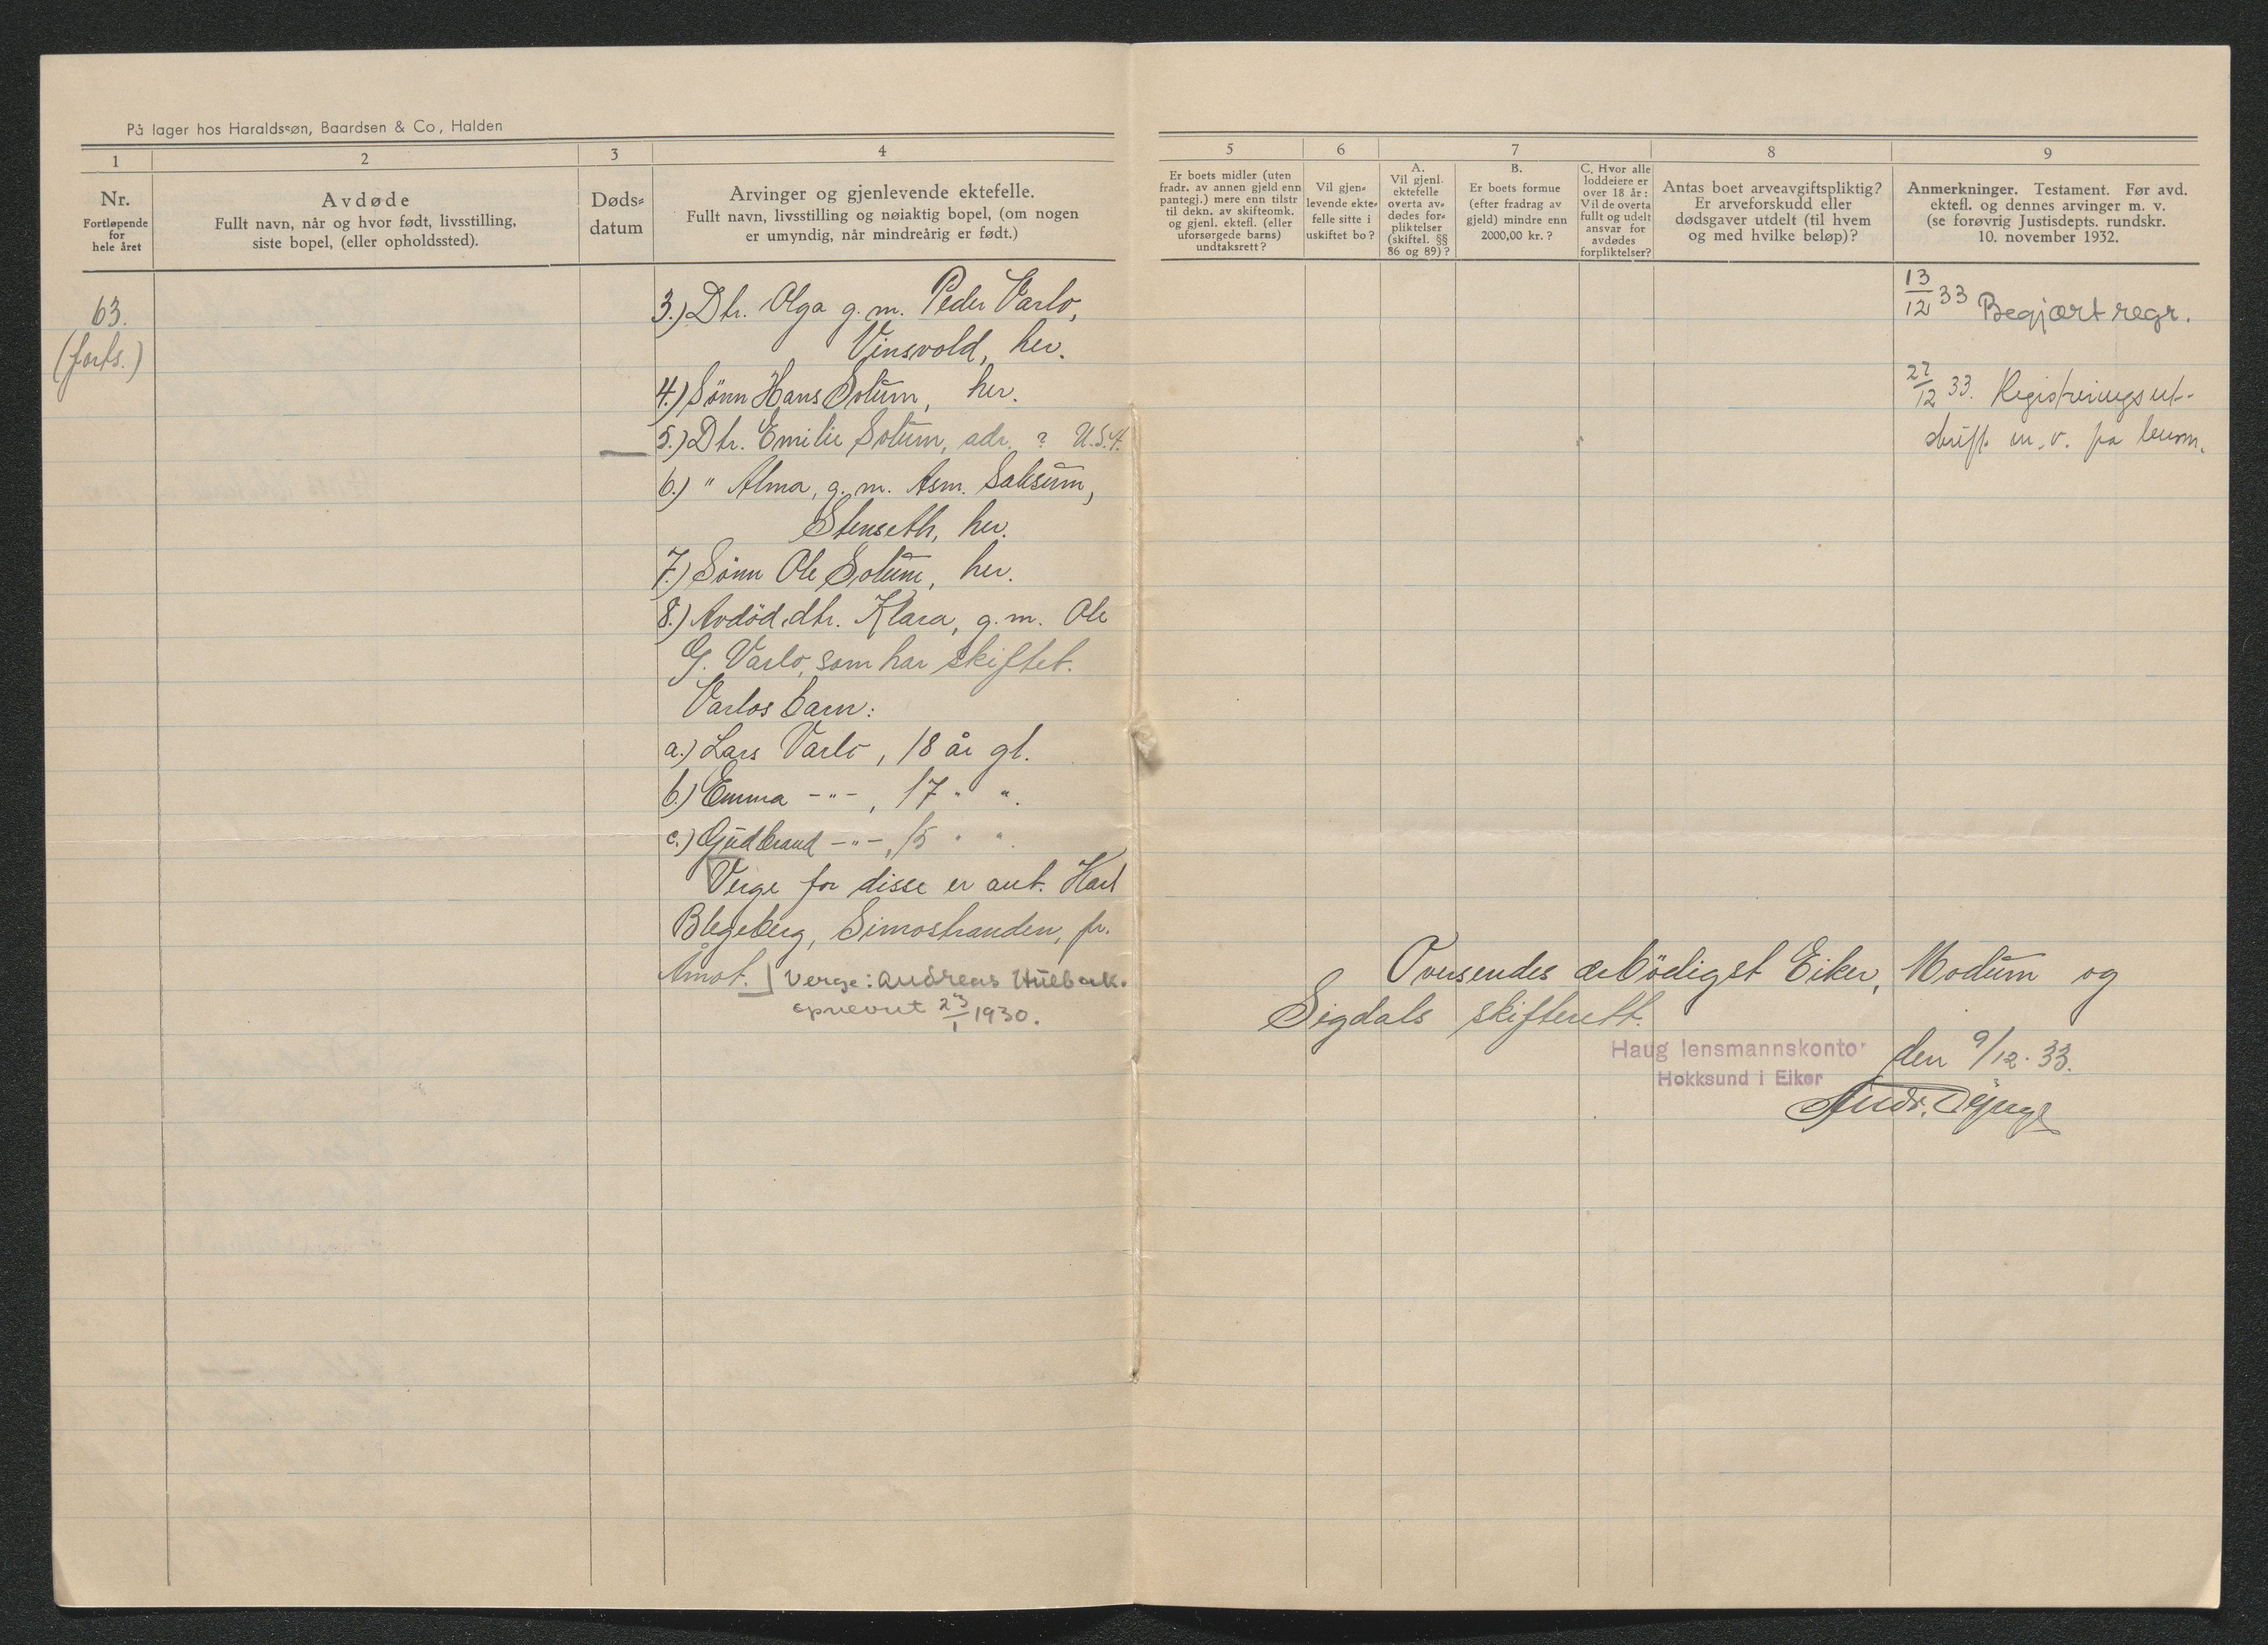 På lager hos Haraldssøn, Baardsen & Co, Halden
1
2
3
4
5
6
7
8
9
Nr.
Fortløpende
for
hele året
Avdøde
Fullt navn, når og hvor født, livsstilling,
siste bopel, (eller opholdssted).
Døds-
datum
Arvinger og gjenlevende ektefelle.
Fullt navn, livsstilling og nøiaktig bopel, (om nogen
er umyndig, når mindreårig er født.)
Er boets midler (uten
fradr. av annen gjeld enn
pantegj.) mere enn tilstr
til dekn. av skifteomk.
og gjenl. ektefl. (eller
uforsørgede barns)
undtaksrett?
Vil gjen-
levende ekte-
felle sitte i
uskiftet bo?
A.
Vil gjenl.
ektefelle
overta av-
dødes for-
pliktelser
(skiftel. §§
86 og 89)?
B.
Er boets formue
(efter fradrag av
gjeld) mindre enn
2000,00 kr.?
C. Hvor alle
loddeiere er
over 18 år:
Vil de overta
fullt og udelt
ansvar for
avdødes
forpliktelser?
Antas boet arveavgiftspliktig?
Er arveforskudd eller
dødsgaver utdelt (til hvem
og med hvilke beløp)?
Anmerkninger. Testament. Før avd.
ektefl. og dennes arvinger m. v.
(se forøvrig Justisdepts. rundskr.
10. november 1932.
63.
(forts.)
3.) Dtr. Olga g. m. Peder Varlo,
Vinsvold, her.
4.) Sönn Hans Solum, her.
5.) Dtr. Emilie Solum, adr. ? U.S.A.
6.) " Alma, g. m. Asm. Saksum,
Stenseth, her.
7.) Sönn Ole Solum, her.
8.) Avdöd dtr. Klara, g. m. Ole
G. Varlo, som har skiftet.
Varlos barn:
a.) Lars Varlo, 18 år gl.
b.) Emma -"-, 17 " ".
c.) Gudbrand -"-, 15 " ".
Verge for disse er ant. Karl
Blegeberg, Simostranden, pr.
Åmot. ] Verge: Andreas
opnevnt 23/1 1930.
13/12 33 Begjært regr.
27/12 33. Registreringsut-
skrift m. v. fra lensm.
Oversendes ærbödigst Eiker, Modum og
Sigdals skifterett.
Haug lensmannskontor
Hokksund i Eiker
den 9/12. 33.
Andr.